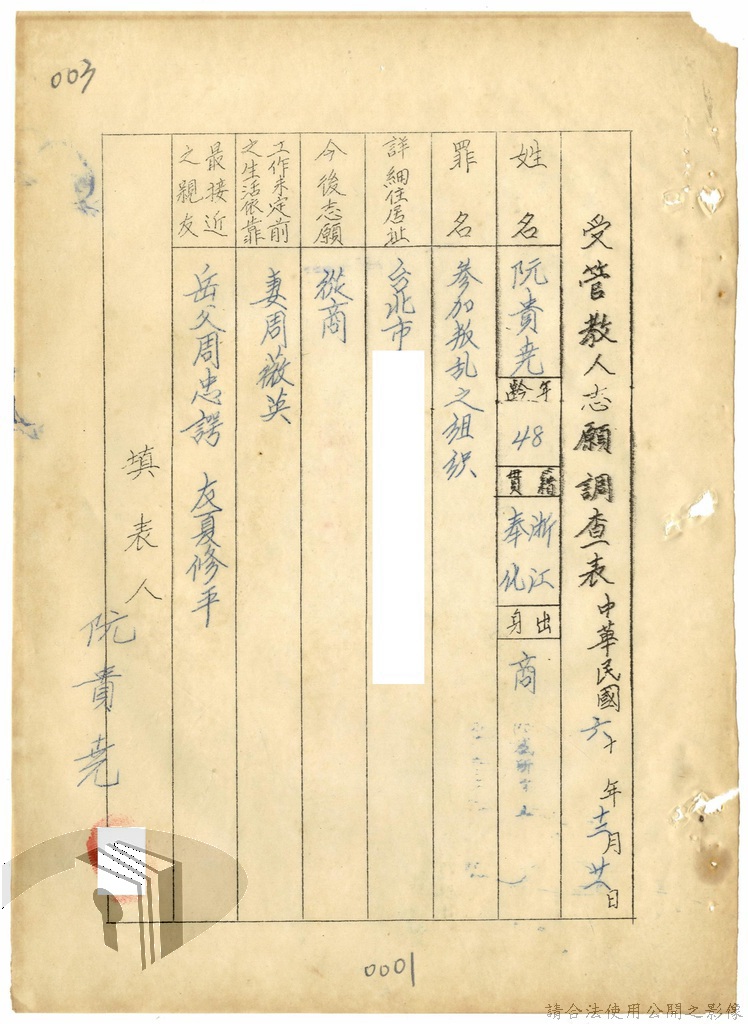 003
受管教人志願調查表 中華民國六十年十二月廿八日
姓名 阮貴堯
年齡 48
籍貫 浙江奉化
出身 商
罪名 參加叛乱之组织
詳細住居址 台北市
今後志願 從商
工作未定前之生活依靠 妻周薇英
最接近之親友 岳父周忠諤 友夏修平
填表人 阮貴堯
0001
請合法使用公開之影像